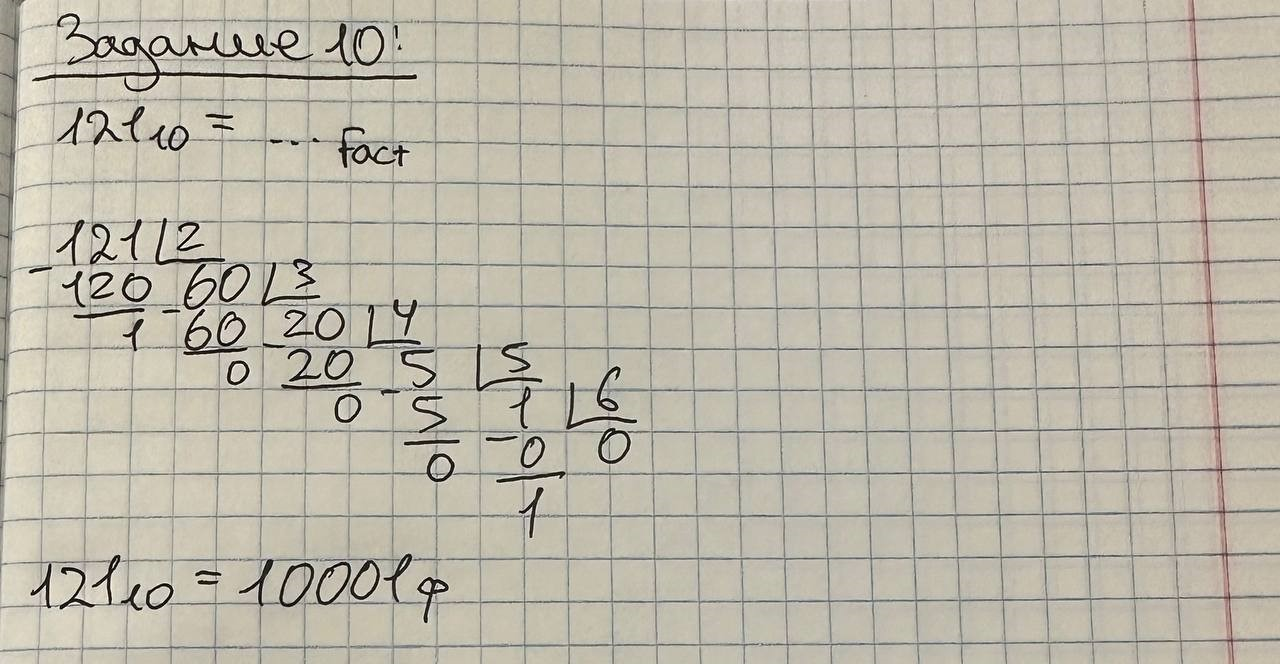 Задание 10:
121₁₀ = ... fact
- 121 | 2
120 - 60 | 3
1 60 - 20 | 4
0 20 - 5 | 5
0 5 - 1 | 6
0 0 0
1
121₁₀ = 10001ф